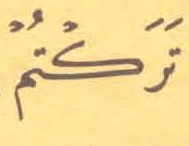 تَرَكْتُمْ